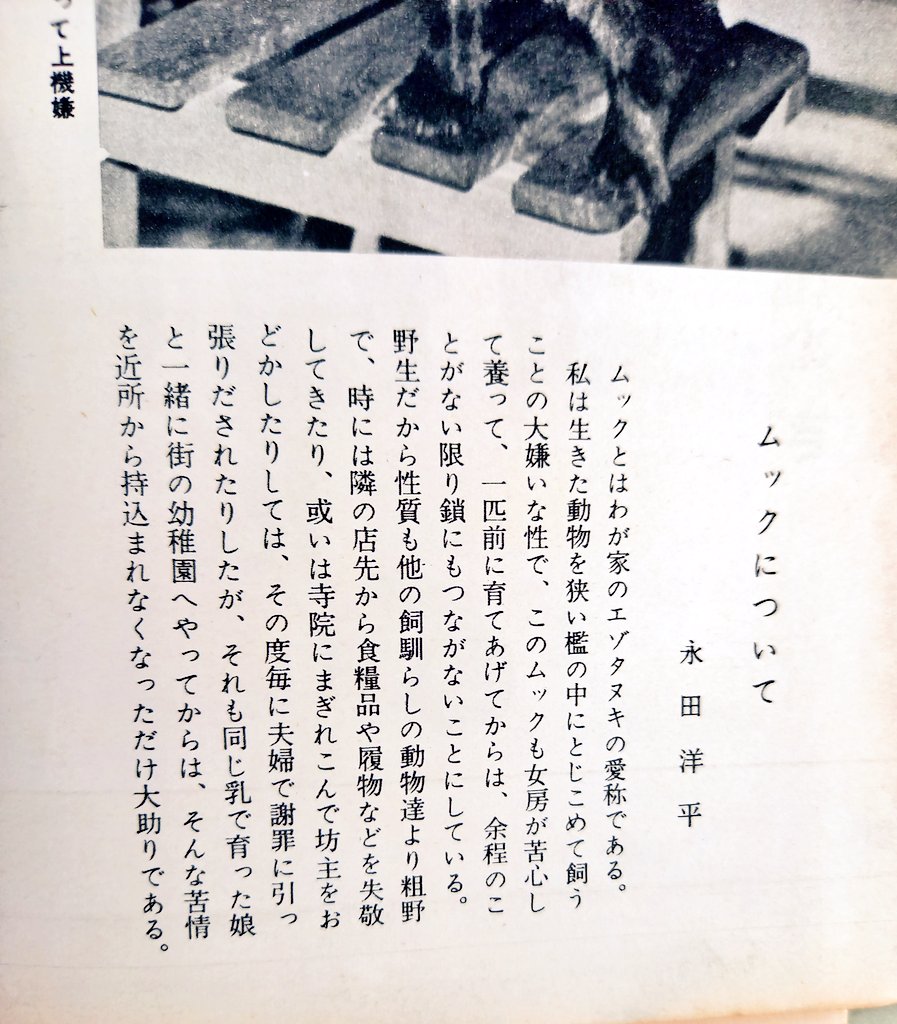 ムックについて
永田洋平
ムックとはわが家のエゾタヌキの愛称である。
私は生きた動物を狭い檻の中にとじこめて飼う
ことの大嫌いな性で、このムックも女房が苦心し
て養って、一匹前に育てあげてからは、余程のこ
とがない限り鎖にもつながないことにしている。
野生だから性質も他の飼馴らしの動物達より粗野
で、時には隣の店先から食糧品や履物などを失敬
してきたり、或いは寺院にまぎれこんで坊主をお
どかしたりしては、その度毎に夫婦で謝罪に引っ
張りだされたりしたが、それも同じ乳で育った娘
と一緒に街の幼稚園へやってからは、そんな苦情
を近所から持込まれなくなっただけ大助りである。
って上機嫌